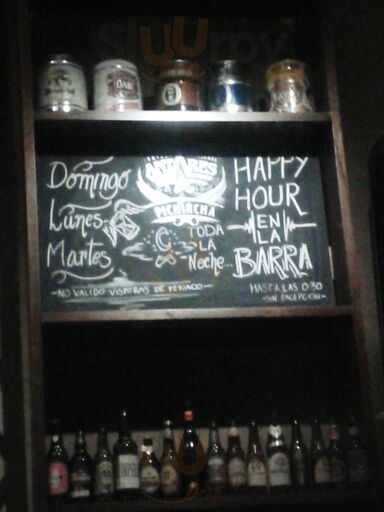 Sluurpy
DAB
Domingo
Lunes
Martes
ANTARES
PICHINCHA
TODA
LA
Noche...
HAPPY
HOUR
EN
LA
BARRA
HASTA LAS 0:30
-SIN EXCEPCIÓN-
-NO VALIDO VISPERAS DE FERIADO-